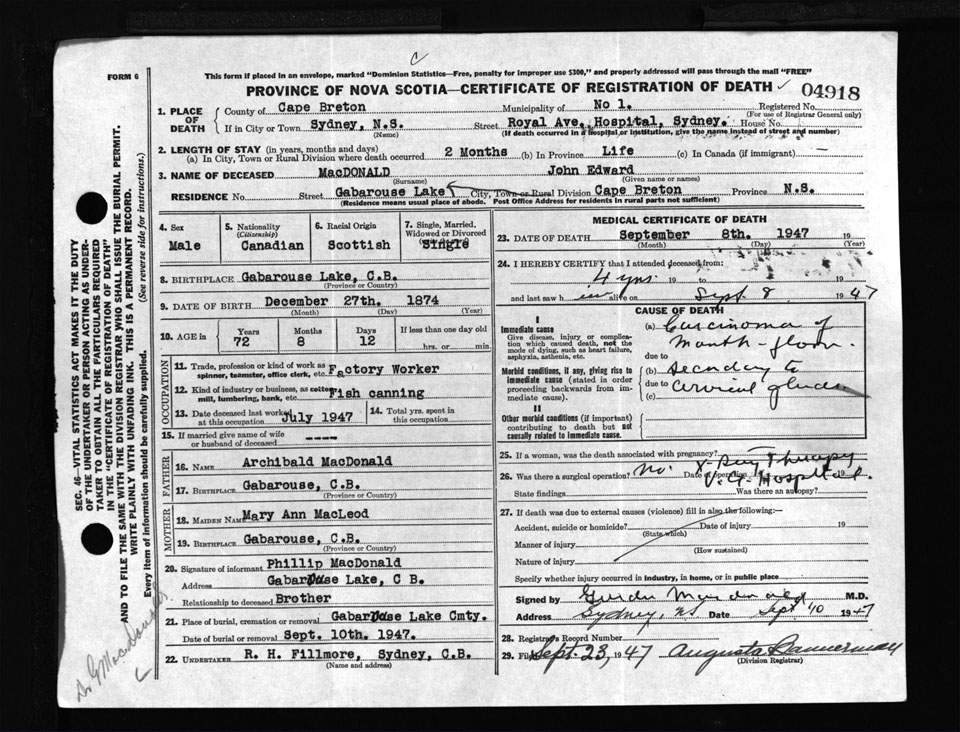 C
FORM 6
This form if placed in an envelope, marked "Dominion Statistics—Free, penalty for improper use $300," and properly addressed will pass through the mail "FREE"
PROVINCE OF NOVA SCOTIA—CERTIFICATE OF REGISTRATION OF DEATH ✓ 04918
1. PLACE OF DEATH County of Cape Breton Municipality of No 1. Registered No.
(For use of Registrar General only)
If in City or Town Sydney, N.S. Street Royal Ave. Hospital, Sydney. House No.
(Name) (If death occurred in a hospital or institution, give the name instead of street and number)
2. LENGTH OF STAY (in years, months and days)
(a) In City, Town or Rural Division where death occurred 2 Months (b) In Province Life (c) In Canada (if immigrant) —
3. NAME OF DECEASED MacDONALD John Edward
(Surname) (Given name or names)
RESIDENCE No. Street Gabarouse Lake City, Town or Rural Division Cape Breton Province N.S.
(Residence means usual place of abode. Post Office Address for residents in rural parts not sufficient)
4. Sex Male
5. Nationality (Citizenship) Canadian
6. Racial Origin Scottish
7. Single, Married, Widowed or Divorced Single
8. BIRTHPLACE Gabarouse Lake, C.B.
(Province or Country)
9. DATE OF BIRTH December 27th. 1874
(Month) (Day) (Year)
10. AGE in Years Months Days If less than one day old
72 8 12 hrs. or min.
OCCUPATION
11. Trade, profession or kind of work as spinner, teamster, office clerk, etc. Factory Worker
12. Kind of industry or business, as cotton mill, lumbering, bank, etc. Fish canning
13. Date deceased last worked at this occupation July 1947 14. Total yrs. spent in this occupation
15. If married give name of wife or husband of deceased ----
FATHER
16. NAME Archibald MacDonald
17. BIRTHPLACE Gabarouse, C.B.
MOTHER
18. MAIDEN NAME Mary Ann MacLeod
19. BIRTHPLACE Gabarouse, C.B.
(Province or Country)
20. Signature of informant Phillip MacDonald
Address Gabarouse Lake, C B.
Relationship to deceased Brother
21. Place of burial, cremation or removal Gabarouse Lake Cmty.
Date of burial or removal Sept. 10th. 1947.
22. UNDERTAKER R. H. Fillmore, Sydney, C.B.
(Name and address)
MEDICAL CERTIFICATE OF DEATH
23. DATE OF DEATH September 8th. 1947 19
(Month) (Day) (Year)
24. I HEREBY CERTIFY that I attended deceased from:
4 yrs 19 to 19
and last saw h im alive on Sept. 8 1947
CAUSE OF DEATH
I
Immediate cause
Give disease, injury or complication which caused death, not the mode of dying, such as heart failure, asphyxia, asthenia, etc.
(a) Carcinoma of
Mouth-floor.
due to
Morbid conditions, if any, giving rise to immediate cause (stated in order proceeding backwards from immediate cause).
(b) Secondary to
due to cervical glands
(c)
II
Other morbid conditions (if important) contributing to death but not causally related to immediate cause.
25. If a woman, was the death associated with pregnancy?
26. Was there a surgical operation? No. Date of operation 19
X-Ray Therapy
V.G. Hospital.
State findings Was there an autopsy?
27. If death was due to external causes (violence) fill in also the following:—
Accident, suicide or homicide? Date of injury 19
(State which)
Manner of injury
(How sustained)
Nature of injury
Specify whether injury occurred in industry, in home, or in public place
Signed by M.D.
Address Sydney, NS Date Sept 10 1947
28. Registrar's Record Number
29. Filed Sept. 23, 1947 Augusta Bannerman
(Division Registrar)
SEC. 46—VITAL STATISTICS ACT MAKES IT THE DUTY
OF THE UNDERTAKER OR PERSON ACTING AS UNDERTAKER TO OBTAIN ALL THE PARTICULARS REQUIRED
IN THE "CERTIFICATE OF REGISTRATION OF DEATH"
AND TO FILE THE SAME WITH THE DIVISION REGISTRAR WHO SHALL ISSUE THE BURIAL PERMIT.
WRITE PLAINLY WITH UNFADING INK. THIS IS A PERMANENT RECORD.
Every item of information should be carefully supplied. (See reverse side for instructions.)
Dr G MacDonald